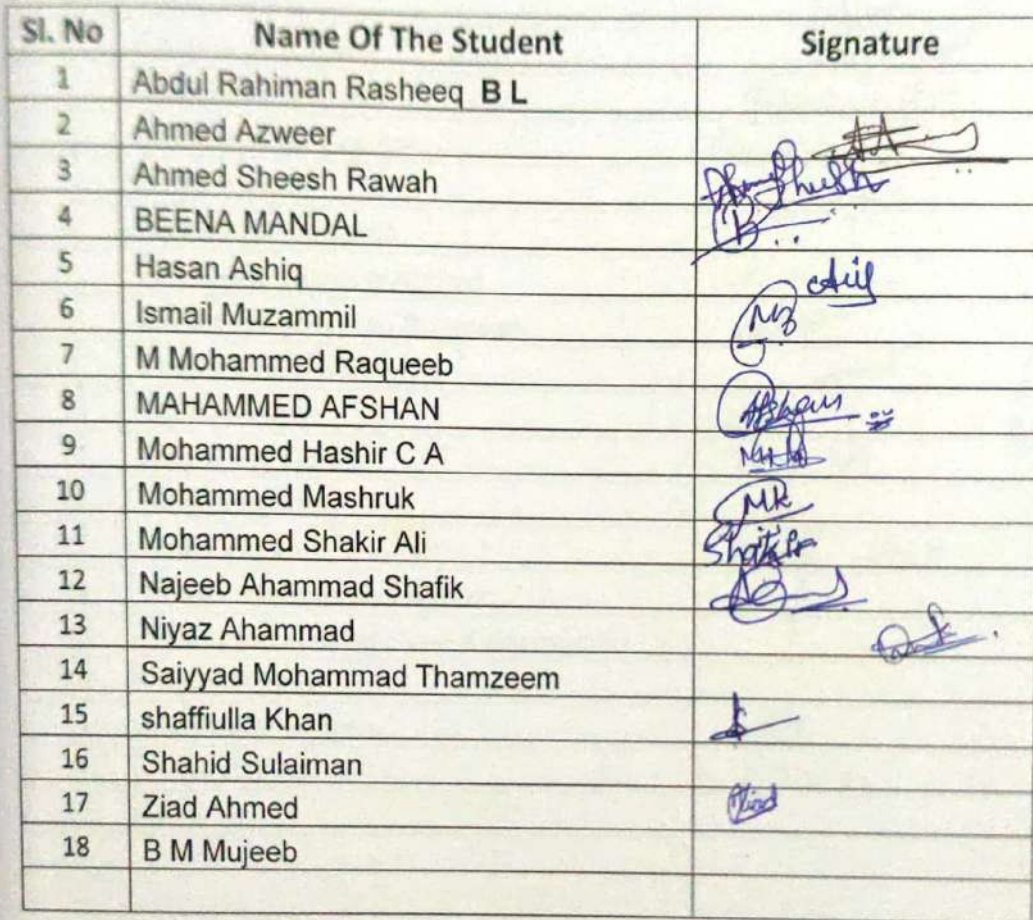 Sl. No Name Of The Student Signature
1 Abdul Rahiman Rasheeq B L
2 Ahmed Azweer
3 Ahmed Sheesh Rawah
4 BEENA MANDAL B
5 Hasan Ashiq
6 Ismail Muzammil MZ
7 M Mohammed Raqueeb
8 MAHAMMED AFSHAN Afshan
9 Mohammed Hashir C A
10 Mohammed Mashruk MK
11 Mohammed Shakir Ali Shakir
12 Najeeb Ahammad Shafik
13 Niyaz Ahammad
14 Saiyyad Mohammad Thamzeem
15 shaffiulla Khan
16 Shahid Sulaiman
17 Ziad Ahmed Ziad
18 B M Mujeeb